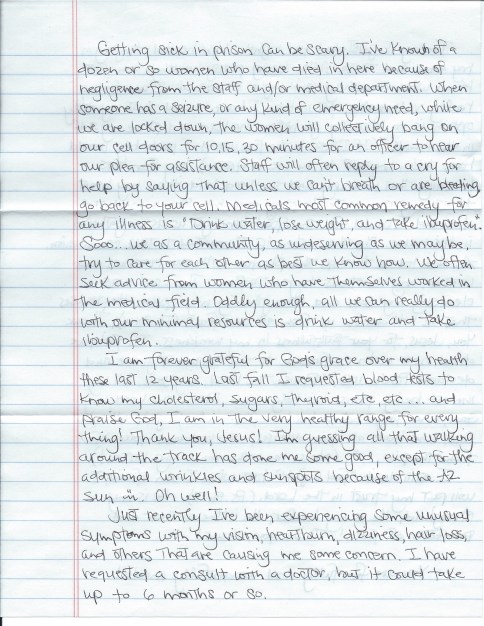 Getting sick in prison can be scary. I've known of a
dozen or so women who have died in here because of
negligence from the staff and/or medical department. When
someone has a seizure, or any kind of emergency need, while
we are locked down, the women will collectively bang on
our cell doors for 10, 15, 30 minutes for an officer to hear
our plea for assistance. Staff will often reply to a cry for
help by saying that unless we can't breath or are bleeding,
go back to your cell. Medical's most common remedy for
any illness is "Drink water, lose weight, and take ibuprofen."
Sooo... we as a community, as undeserving as we may be,
try to care for each other as best we know how. We often
seek advice from women who have themselves worked in
the medical field. Oddly enough, all we can really do
with our minimal resources is drink water and take
ibuprofen.
I am forever grateful for God's grace over my health
these last 12 years. Last fall I requested blood tests to
know my cholesterol, sugars, thyroid, etc, etc... and
praise God, I am in the very healthy range for every
thing! Thank you, Jesus! I'm guessing all that walking
around the track has done me some good, except for the
additional wrinkles and sunspots because of the AZ
sun. Oh well!
Just recently I've been experiencing some unusual
symptoms with my vision, heartburn, dizziness, hair loss,
and others that are causing me some concern. I have
requested a consult with a doctor, but it could take
up to 6 months or so.